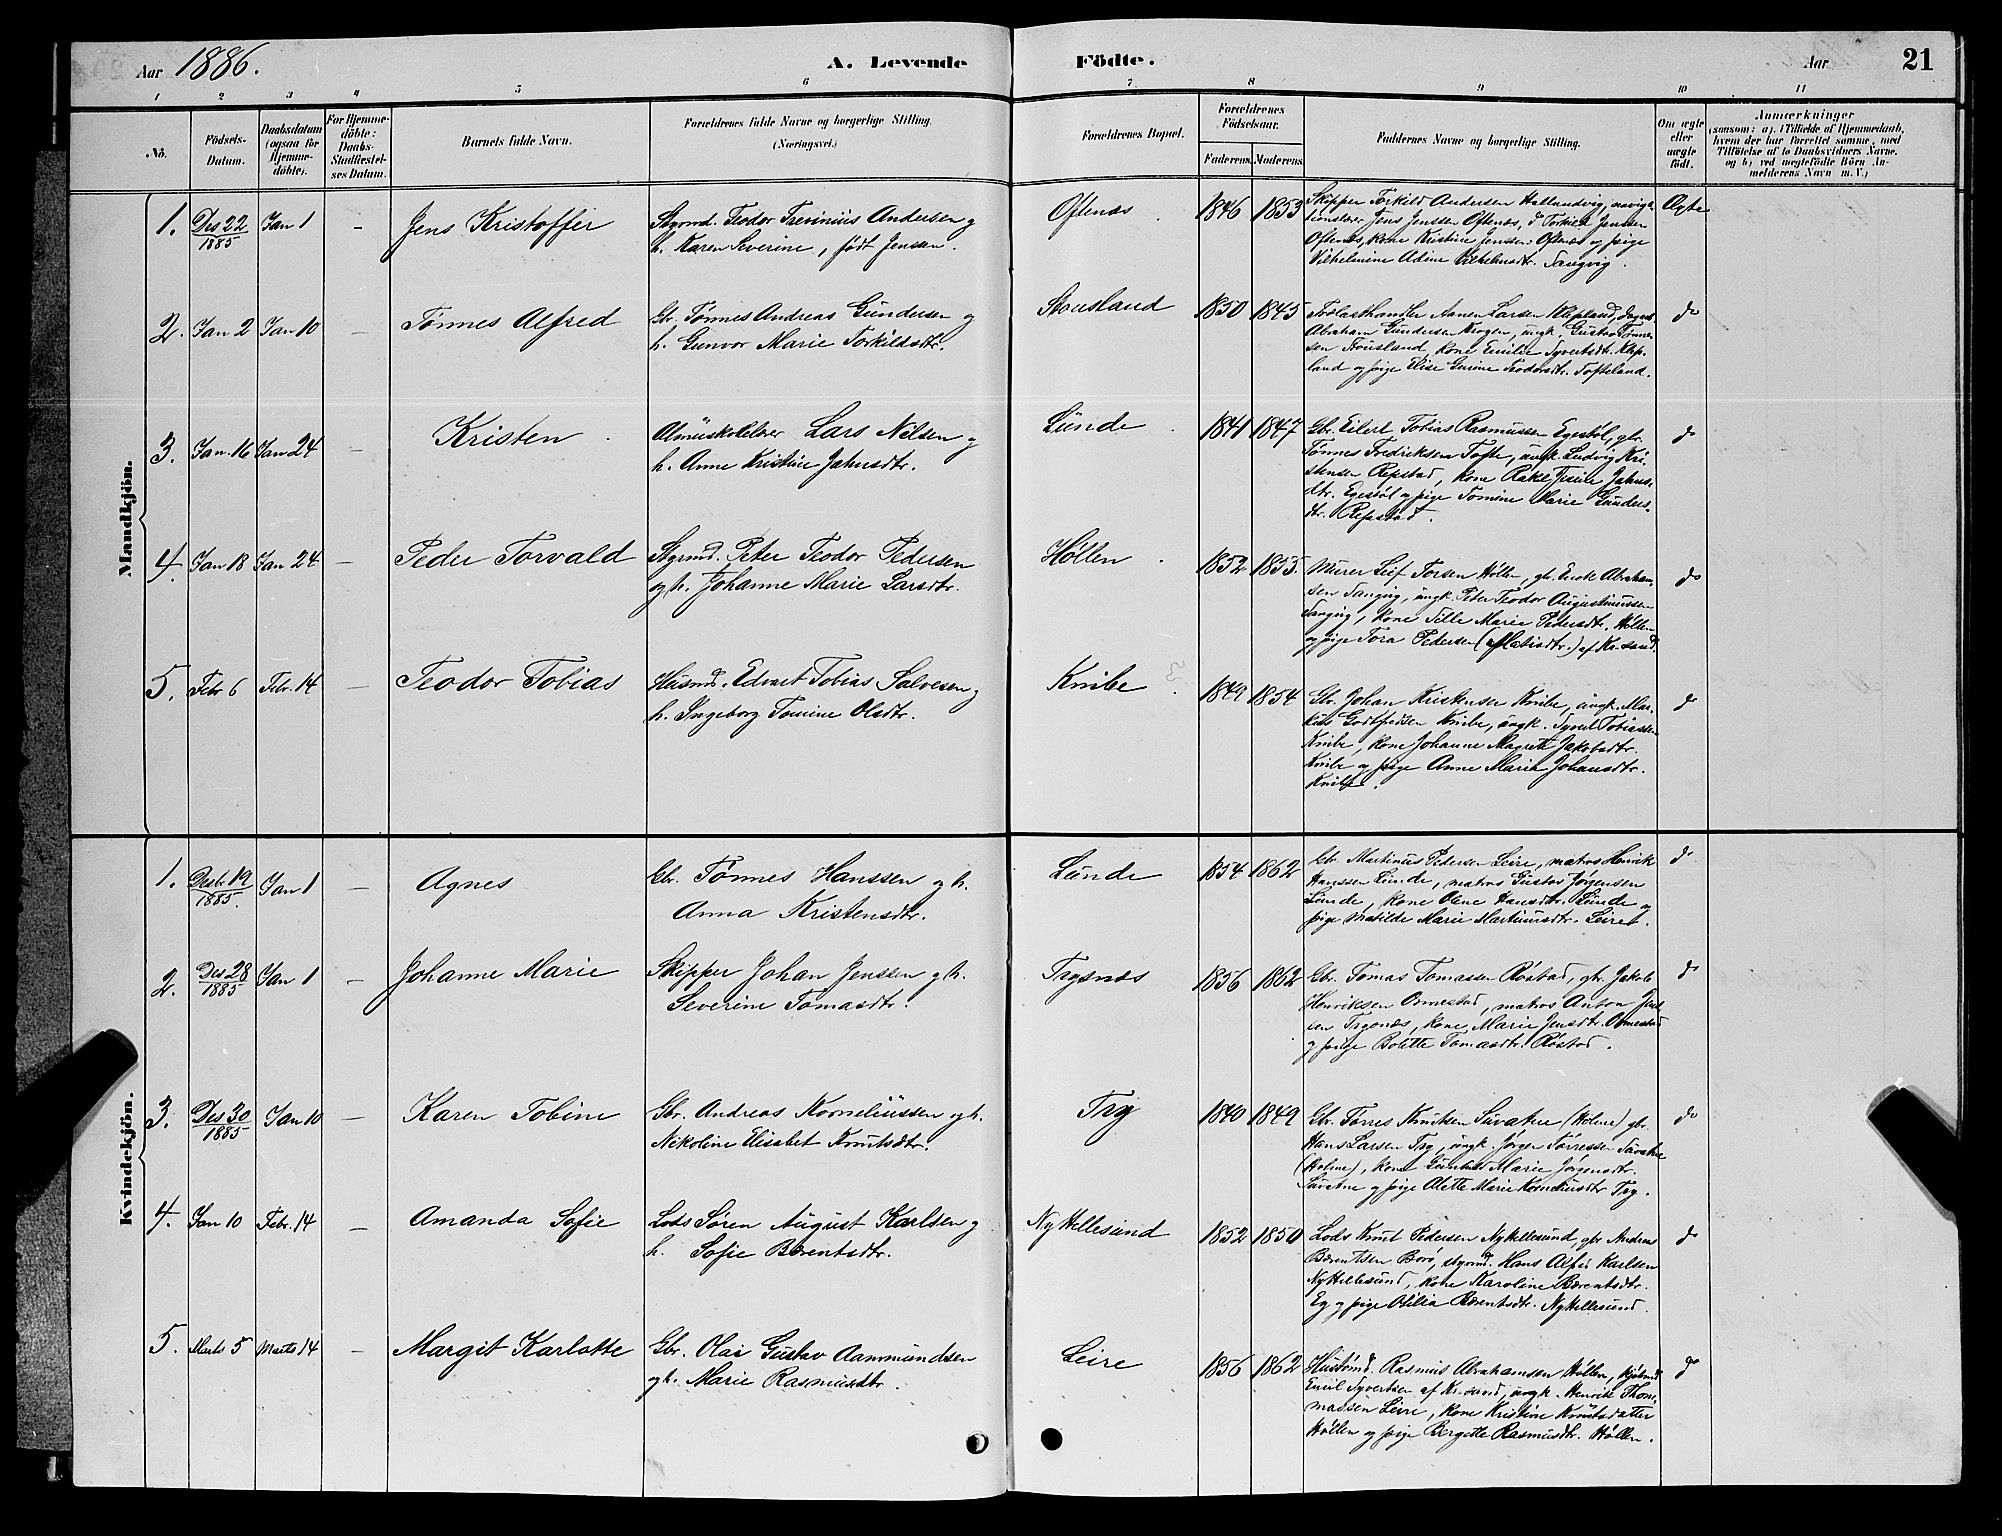 Aar 1886. A. Levende Födte. Aar 21
1 2 3 4 5 6 7 8 9 10 11
No.
Födsels-
Datum.
Daabsdatum
(ogsaa for
Hjemme-
döbte).
For Hjemme-
döbte:
Daabs-
Stadfæstel-
ses Datum.
Barnets fulde Navn.
Forældrenes fulde Navne og borgerlige Stilling.
(Næringsvei.)
Forældrenes Bopæl.
Forældrenes
Födselsaar.
Faderens. Moderens.
Faddernes Navne og borgerlige Stilling.
Om ægte
eller
uægte
født.
Anmærkninger
(saasom: a). i Tilfælde af Hjemmedaab,
hvem der har forrettet samme, med
Tilföielse af to Daabsvidners Navne,
og b) ved uægtefödte Börn An-
melderens Navn m. V.)
Mandkjön.
1. Des 22
1885
Jan 1 - Jens Kristoffer
Styrmd. Teodor Trevinius Andersen og
h. Karen Severine, født Jensen.
Oftenæs . 1846 1853
Skipper Torkild Andersen Hallandvig, naviga-
tionslærer Jens Jenssen Oftenæs, do Torkild Jenssen
Oftenæs, kone Kristine Jenssen Oftenæs og pige
Vilhelmine Adine Vilhelmsdtr. Tangvig.
Ægte
2. Jan 2 Jan 10 - Tønnes Alfred
Gbr. Tønnes Andreas Gundersen og
h. Gunvor Marie Torkildsdtr.
Stousland 1850 1845
Trælasthandler Aanen Larsen Klepland,
Abraham Gundersen Krogen, ungk. Gustav Tønne-
sen Stousland, kone Emilie Syvertsdtr. Klep-
land og pige Elise Gurine Teodorsdtr. Tofteland.
do
3. Jan 16 Jan 24 - Kristen
Almueskolelærer Lars Nilsen og
h. Anne Kristine Jahnsdtr.
Lunde . 1841 1847
Gbr. Eilert Tobias Rasmussen Egestøl, gbr.
Tønnes Fredriksen Tofte, ungk. Ludvig Kri-
stensen Repstad, kone Rakel Jesine Jahns-
dtr. Egestøl og pige Tomine Marie Gunders-
dtr. Repstad.
do
4. Jan 18 Jan 24 - Peder Torvald
Styrmd. Peter Teodor Pedersen
og h. Johanne Marie Larsdtr.
Høllen . 1852 1855.
Murer Leif Torsen Høllen, gbr. Enok Abraham-
sen Tangvig, ungk. Peter Teodor Augustinussen
Tangvig, kone Tille Marie Pedersdtr. Høllen
og pige Tora Pedersen (Matisdtr.) af Kr.sand.
do
5. Febr 6 Febr. 14 - Teodor Tobias
Husmd. Edvart Tobias Salvesen og
h. Ingeborg Tomine Olsdtr.
Knibe 1849 1854
Gbr. Johan Kristensen Knibe, ungk. Mar-
kus Godtfredsen Knibe, ungk. Syvert Tobiassen
Knibe, kone Johanne Magrete Jakobsdtr.
Knibe og pige Anne Marie Johansdtr.
Knibe.
do
Kvindekjön.
1. Desbr. 19
1885.
Jan 1 - Agnes
Gbr. Tønnes Hanssen og h.
Anna Kristensdtr.
Lunde 1854 1862
Gbr. Martinus Pedersen Leire, matros Henrik
Hanssen Lunde, matros Gustav Jørgensen
Lunde, kone Olene Hansdtr. Lunde og
pige Matilde Marie Martinusdtr. Leire.
do
2. Des 28
1885
Jan 1 - Johanne Marie
Skipper Johan Jenssen og h.
Severine Tomasdtr.
Trysnæs 1856 1862
Gbr. Tomas Tomassen Røstad, gbr. Jakob
Henriksen Ormestad, matros Anton Jens-
sen Trysnæs, kone Marie Jensdtr. Ormestad
og pige Bolette Tomasdtr. Røstad.
do
3. Des 30
1885
Jan 10 - Karen Tobine
Gbr. Andreas Korneliussen og h.
Nikoline Elisabet Knutsdtr.
Try 1840 1849
Gbr. Tørres Knutsen Suvatne (Holme) gbr.
Hans Larsen Try, ungk. Jørgen Tørressen Suvatne
(Holme), kone Gunhild Marie Jørgensdtr.
Suvatne og pige Olette Marie Korneliusdtr Try.
do
4. Jan 10 Febr. 14 - Amanda Sofie
Lods Søren August Karlsen og
h. Sofie Bærentsdtr.
Ny Hellesund 1852 1850
Lods Knut Pedersen Ny Hellesund, gbr Andreas
Bærentsen Borø, styrmd. Hans Alfred Karlsen
Ny Hellesund, kone Karoline Bærentsdtr.
Eg og pige Otilia Bærentsdtr. Ny Hellesund.
do
5. Marts 5 Marts 14 - Margit Karlotte
Gbr. Olai Gustav Aanmundsen
og h. Marie Rasmusdtr.
Leire 1856 1862
Husmd. Rasmus Abrahamsen Høllen, kjøbmd
Emil Syvertsen af Kr.sand, ungk. Henrik Thom-
massen Leire, kone Kristine Knutsdatter
Høllen og pige Bergitte Rasmusdtr. Høllen.
do